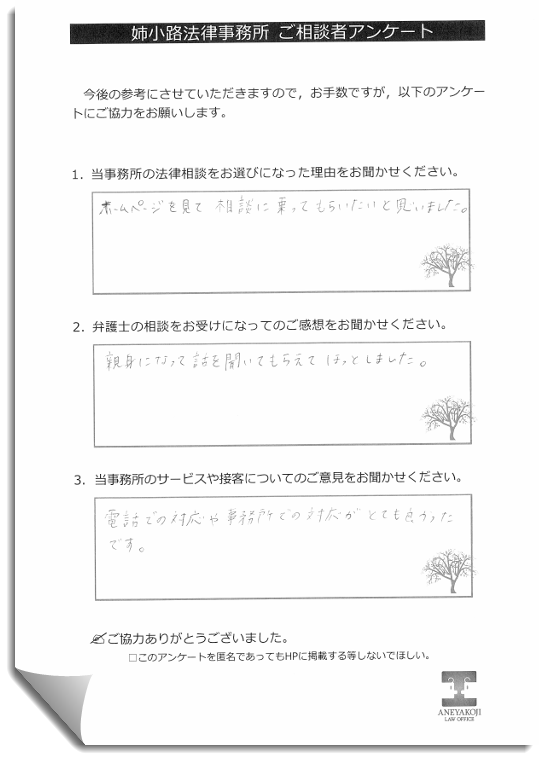 姉小路法律事務所 ご相談者アンケート
今後の参考にさせていただきますので，お手数ですが，以下のアンケー
トにご協力をお願いします。
1．当事務所の法律相談をお選びになった理由をお聞かせください。
ホームページを見て 相談に乗ってもらいたいと思いました。
2．弁護士の相談をお受けになってのご感想をお聞かせください。
親身になって話を聞いてもらえてほっとしました。
3．当事務所のサービスや接客についてのご意見をお聞かせください。
電話での対応や事務所での対応がとても良かった
です。
ご協力ありがとうございました。
□このアンケートを匿名であってもHPに掲載する等しないでほしい。
ANEYAKOJI
LAW OFFICE